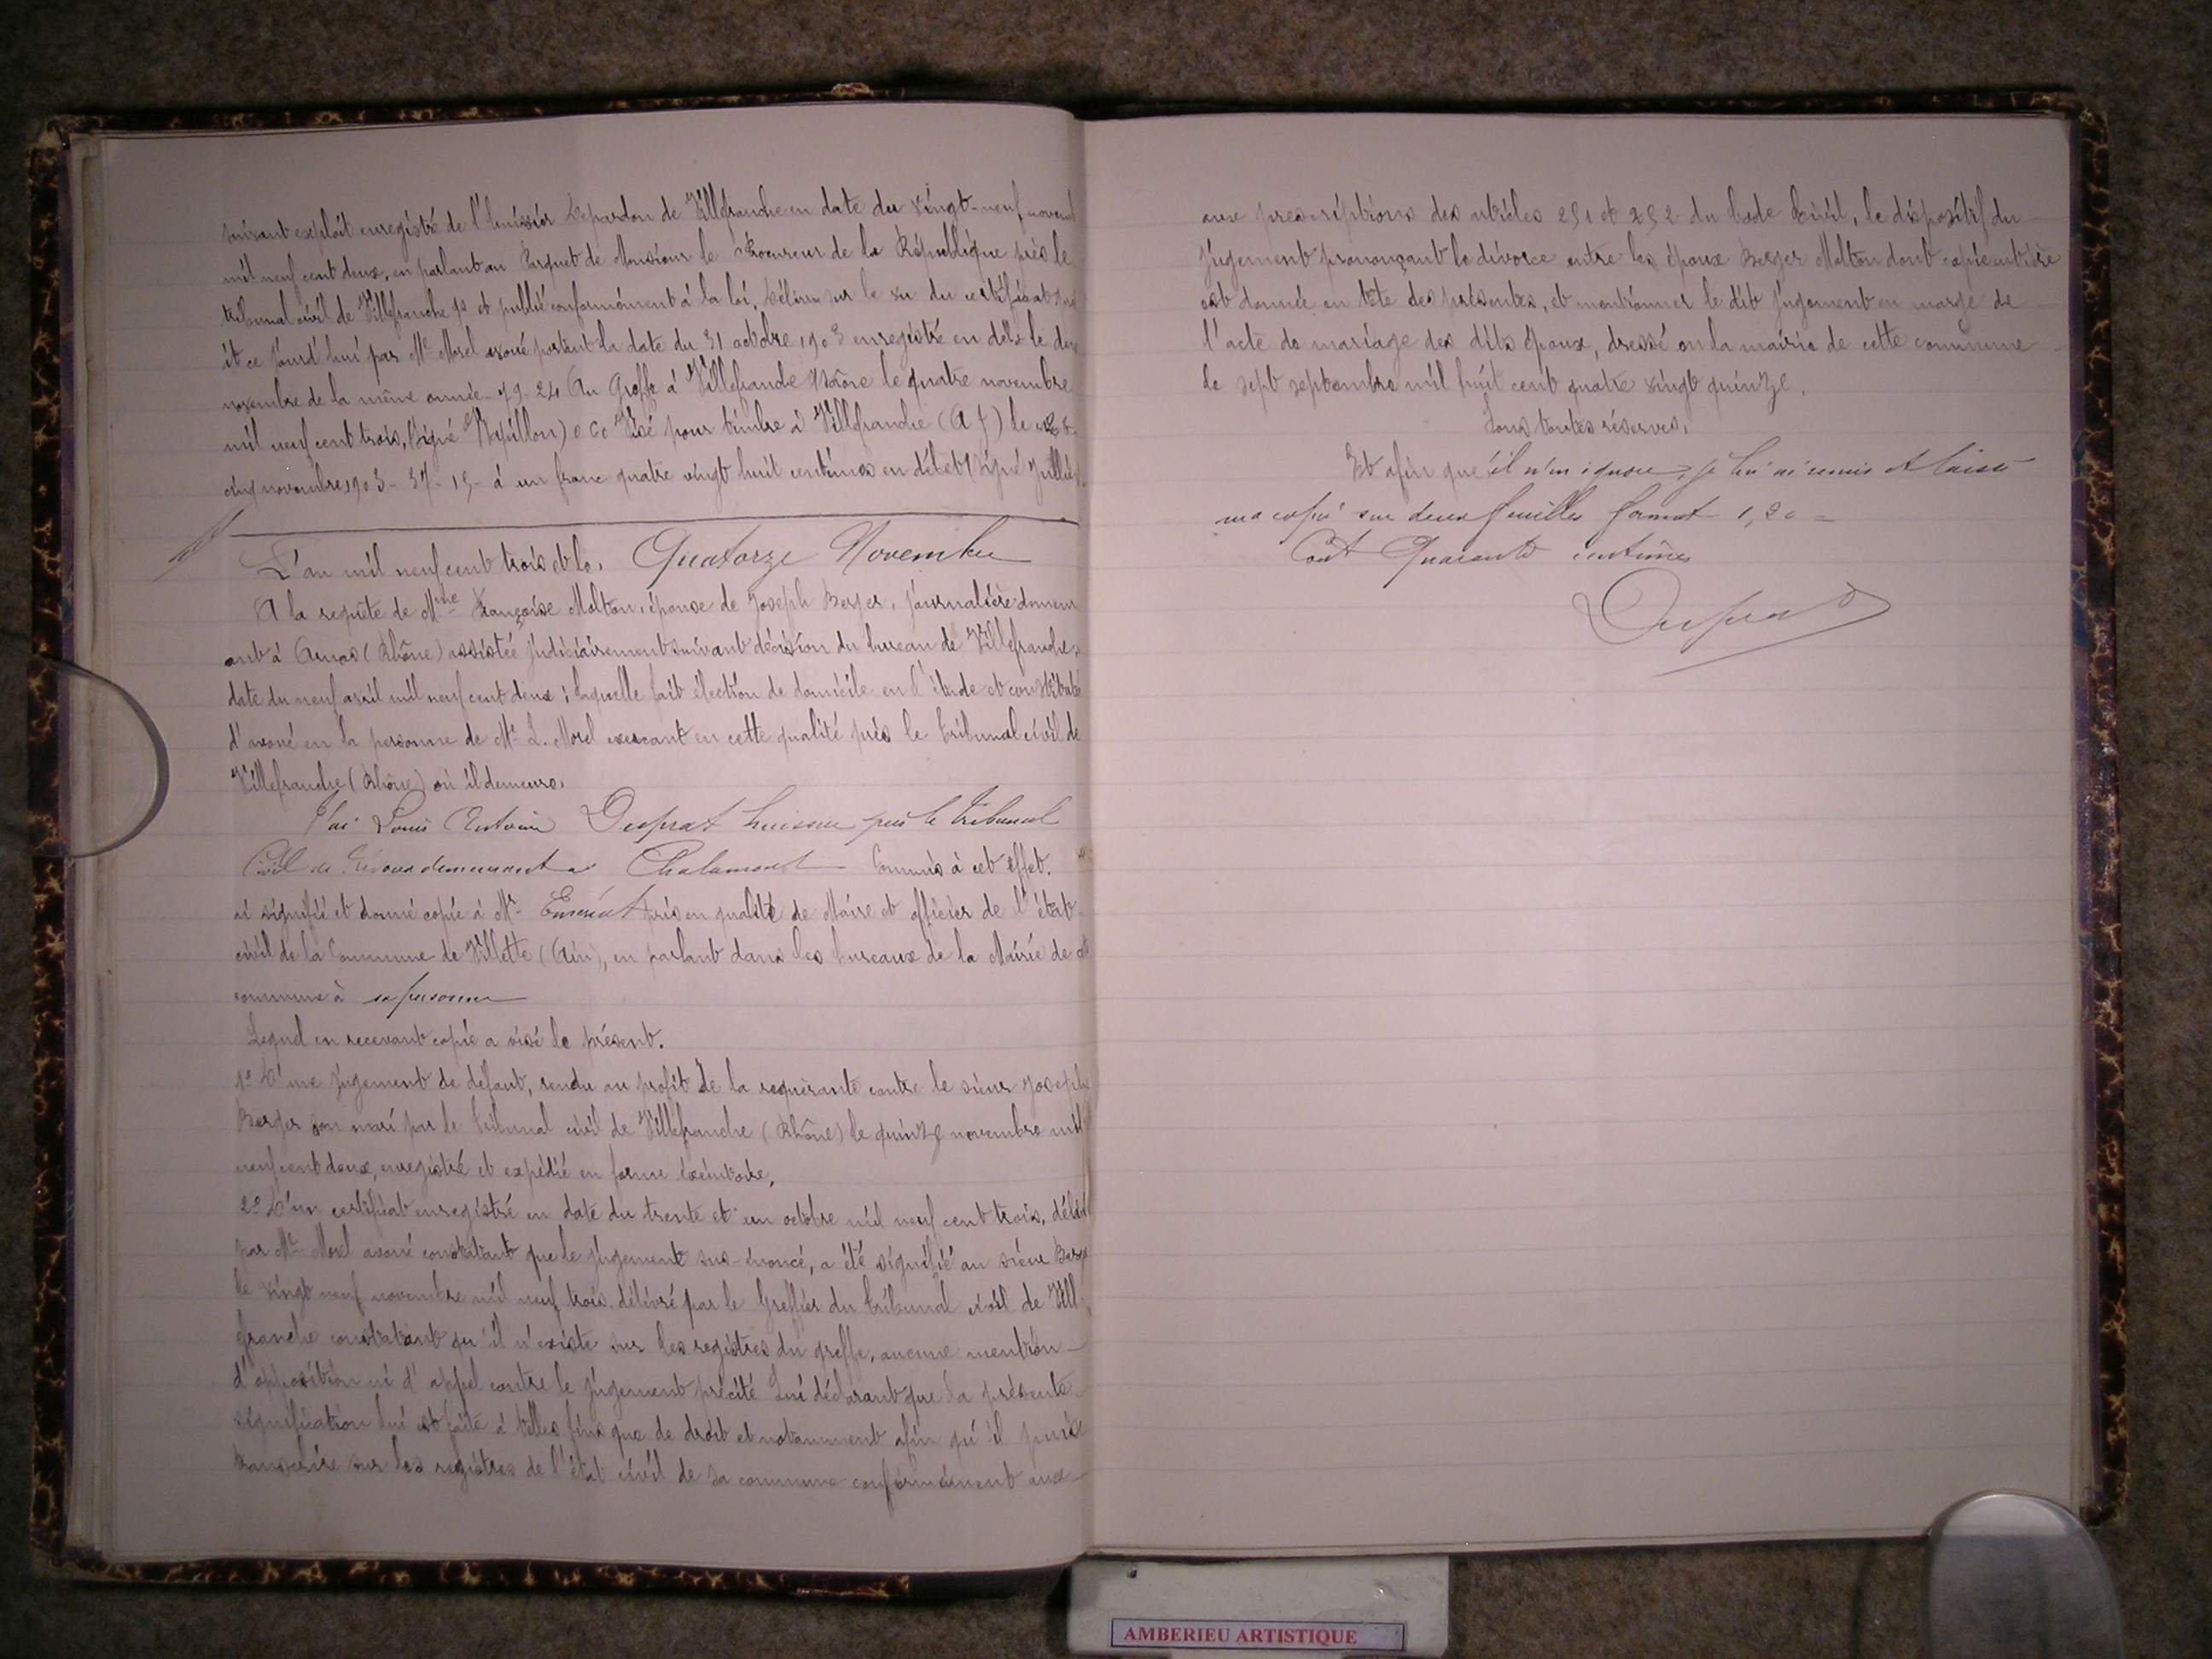 suivant exploit enregistré de l'huissier Depardon de Villefranche en date du vingt-neuf novemb
mil neuf cent deux, en parlant au Parquet de Monsieur le Procureur de la République près le
tribunal civil de Villefranche et publié conformément à la loi, Délivré sur le vu du certificat
it ce jourd'hui par Me Morel avoué portant la date du 31 octobre 1903 enregistré en débet le deux
novembre de la même année - 79 - 24 Au Greffe à Villefranche Rhône le quatre novembre
mil neuf cent trois, (Signé Papillon) Visé pour timbre à Villefranche (A J) le
cinq novembre 1903 - 37 - 15 - à un franc quatre vingt huit centimes en débet (signé Jullié).
L'an mil neuf cent trois et le, Quatorze Novembre
A la requête de Mme Françoise Molton, épouse de Joseph Berger, journalière demeur
ant à Arnas (Rhône) assistée judiciairement suivant décision du bureau de Villefranche,
date du neuf avril mil neuf cent deux ; laquelle fait élection de domicile en l'étude et constitution
d'avoué en la personne de Me L. Morel exercant en cette qualité près le tribunal civil de
Villefranche (Rhône) où il demeure,
J'ai Louis Antoine Duprat huissier près le tribunal
Civil de Trévoux demeurant à Chalamont Commis à cet effet.
ai signifié et donné copie à Mr pris en qualité de Maire et officier de l'état
civil de la Commune de Villette (Ain), en parlant dans les bureaux de la Mairie de
commune à sa personne
Lequel en recevant copie a visé le présent.
1º D'une jugement de défaut, rendu au profit de la requérante contre le sieur Joseph
Berger son mari par le tribunal civil de Villefranche (Rhône) le quinze novembre mil
neuf cent deux, enregistré et expédié en forme exécutoire,
2º D'un certificat enregistré en date du trente et un octobre mil neuf cent trois, délivré
par Me Morel avoué constatant que le jugement sus-énoncé, a été signifié au sieur Berger
le vingt neuf novembre mil neuf trois, délivré par le Greffier du tribunal civil de Ville
franche constatant qu'il n'existe sur les registres du greffe, aucune mention
d'opposition ni d'appel contre le jugement précité Lui déclarant que la présente
signification lui est faite à telles fins que de droit et notamment afin qu'il puisse
transcrire sur les registres de l'état civil de sa commune conformément aux
aux prescriptions des articles 251 et 252 du Code Civil, le dispositif du
jugement prononçant le divorce entre les époux Berger Molton dont copie entière
est donnée en tête des présentes, et mentionner le dit jugement en marge de
l'acte de mariage des dits époux, dressé en la mairie de cette commune
le sept septembre mil huit cent quatre vingt quinze.
Sous toutes réserves,
Et afin que il n'en ignore, je lui ai remis et laissé
ma copie sur deux feuilles format 1,20
Cout Quarante centimes
Duprat
AMBERIEU ARTISTIQUE